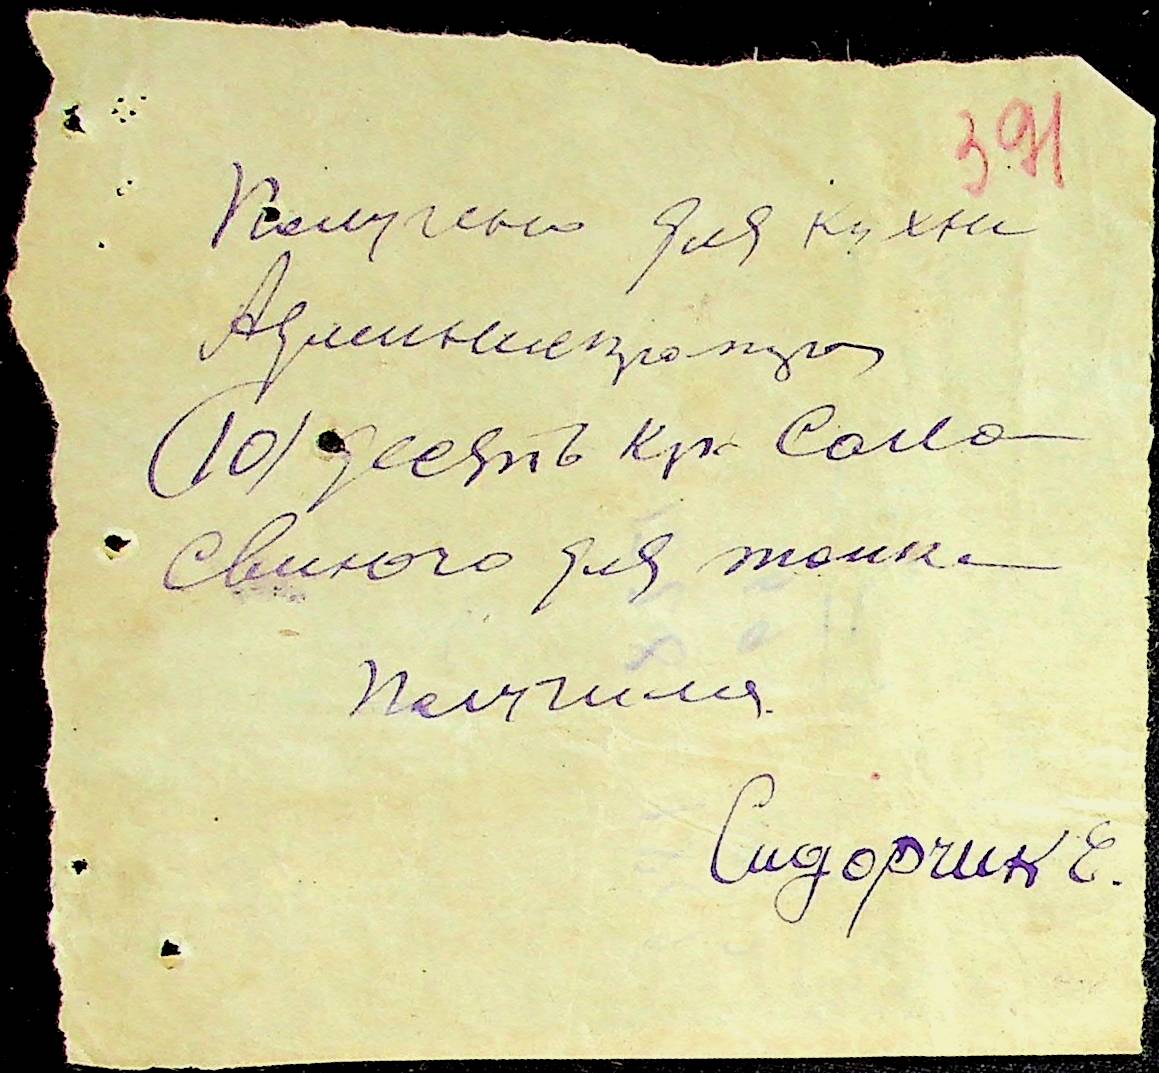 391
Получено для кухни
Администрации
(10) десять кгр Сала
свиного для танка
Получила
Сидорчик Е.